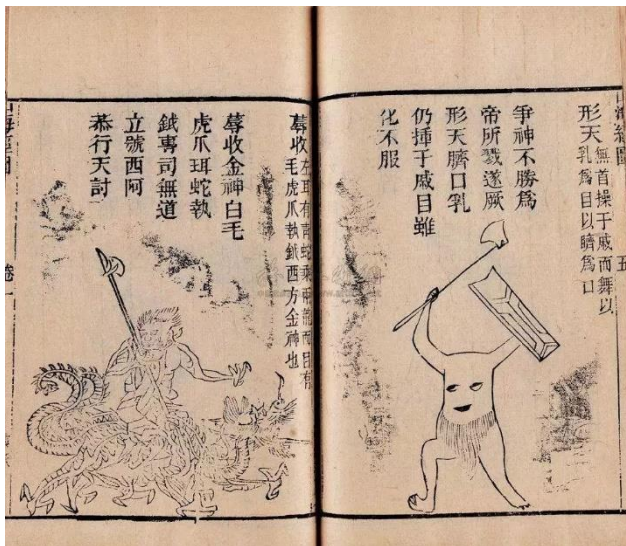 形天 無首操干戚而舞以
乳爲目以臍爲口
爭神不勝爲
帝所戮遂厥
形天臍口乳
仍揮干戚目雖
化不服
蓐收 左耳有青蛇乘兩龍而目有
毛虎爪執鉞西方金神也
蓐收金神白毛
虎爪珥蛇執
鉞專司無道
立號西阿
恭行天討
卷一